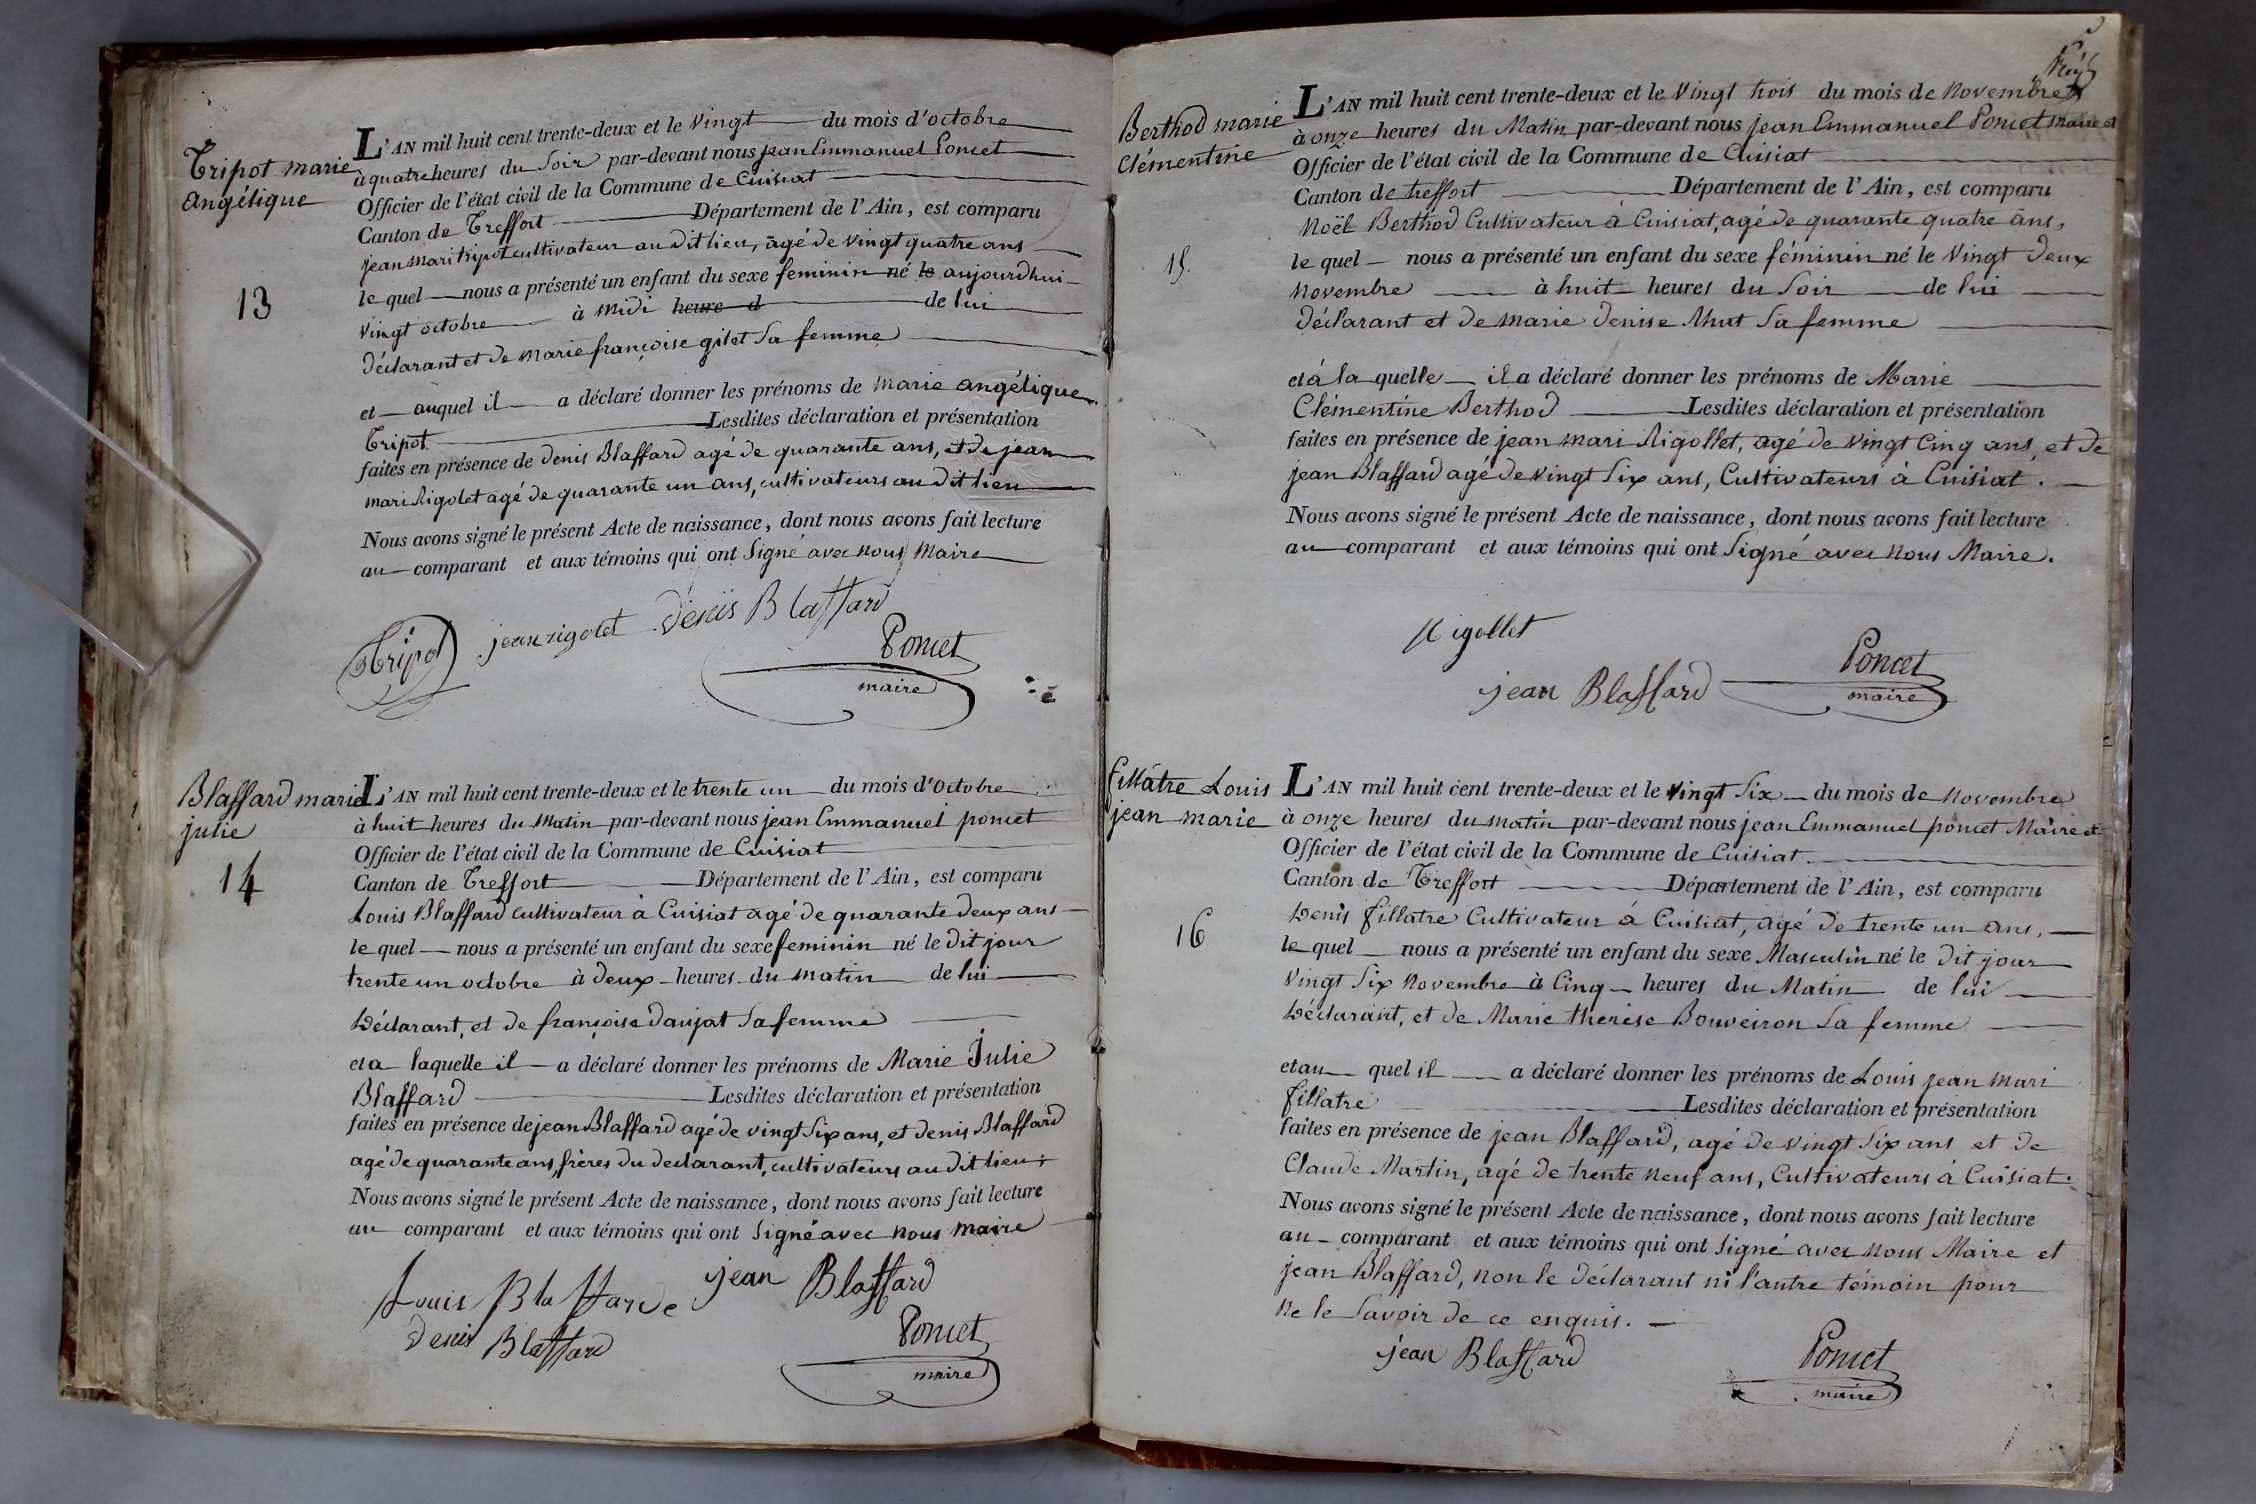 Tripot marie
angélique
13
L'AN mil huit cent trente-deux et le vingt du mois d'octobre
à quatre heures du soir par-devant nous jean Emmanuel Poncet
Officier de l'état civil de la Commune de Cuisiat
Canton de Treffort Département de l'Ain, est comparu
jean mari tripot cultivateur au dit lieu, âgé de vingt quatre ans
le quel nous a présenté un enfant du sexe feminin né le aujourdhui
vingt octobre à midi heure d de lui
déclarant et de marie françoise gilet sa femme
et auquel il a déclaré donner les prénoms de marie angélique
Tripot Lesdites déclaration et présentation
faites en présence de denis Blaffard agé de quarante ans, et de jean
mari Rigolet agé de quarante un ans, cultivateurs au dit lieu
Nous avons signé le présent Acte de naissance, dont nous avons fait lecture
au comparant et aux témoins qui ont signé avec nous Maire
Tripot jean rigolet denis Blaffard
Poncet
maire
Blaffard marie
julie
14
L'AN mil huit cent trente-deux et le trente un du mois d'octobre
à huit heures du matin par-devant nous jean Emmanuel poncet
Officier de l'état civil de la Commune de Cuisiat
Canton de Treffort Département de l'Ain, est comparu
Louis Blaffard cultivateur à Cuisiat agé de quarante deux ans
le quel nous a présenté un enfant du sexe feminin né le dit jour
trente un octobre à deux heures du matin de lui
Déclarant, et de françoise daujat sa femme
et a laquelle il a déclaré donner les prénoms de Marie Julie
Blaffard Lesdites déclaration et présentation
faites en présence de jean Blaffard agé de vingt six ans, et denis Blaffard
agé de quarante ans, frères du declarant, cultivateurs au dit lieu
Nous avons signé le présent Acte de naissance, dont nous avons fait lecture
au comparant et aux témoins qui ont signé avec nous maire
Louis Blaffarde jean Blaffard
denis Blaffard
Poncet
maire
Berthod marie
Clémentine
15.
L'AN mil huit cent trente-deux et le vingt trois du mois de novembre
à onze heures du Matin par-devant nous jean Emmanuel Poncet maire et
Officier de l'état civil de la Commune de Cuisiat
Canton de treffort Département de l'Ain, est comparu
Noël Berthod Cultivateur à Cuisiat, agé de quarante quatre ans,
le quel nous a présenté un enfant du sexe féminin né le vingt deux
Novembre à huit heures du soir de lui
déclarant et de marie denise sa femme
et à la quelle il a déclaré donner les prénoms de Marie
Clémentine Berthod Lesdites déclaration et présentation
faites en présence de jean mari Rigollet, agé de vingt cinq ans, et de
jean Blaffard agé de vingt six ans, Cultivateurs à Cuisiat.
Nous avons signé le présent Acte de naissance, dont nous avons fait lecture
au comparant et aux témoins qui ont signé avec nous Maire.
Rigollet
jean Blaffard
Poncet
maire
fillâtre Louis
jean marie
16
L'AN mil huit cent trente-deux et le vingt six du mois de novembre
à onze heures du matin par-devant nous jean Emmanuel poncet Maire et
Officier de l'état civil de la Commune de Cuisiat.
Canton de Treffort Département de l'Ain, est comparu
Denis fillatre Cultivateur à Cuisiat, agé de trente un ans,
le quel nous a présenté un enfant du sexe Masculin né le dit jour
vingt six novembre à cinq heures du Matin de lui
Déclarant, et de Marie therèse Bouveiron sa femme
et au quel il a déclaré donner les prénoms de Louis jean mari
fillatre Lesdites déclaration et présentation
faites en présence de jean Blaffard, agé de vingt six ans et de
Claude Martin, agé de trente neuf ans, Cultivateurs à Cuisiat.
Nous avons signé le présent Acte de naissance, dont nous avons fait lecture
au comparant et aux témoins qui ont signé avec nous Maire et
jean Blaffard, non le déclarant ni l'autre témoin pour
ne le savoir de ce enquis.
jean Blaffard
Poncet
maire